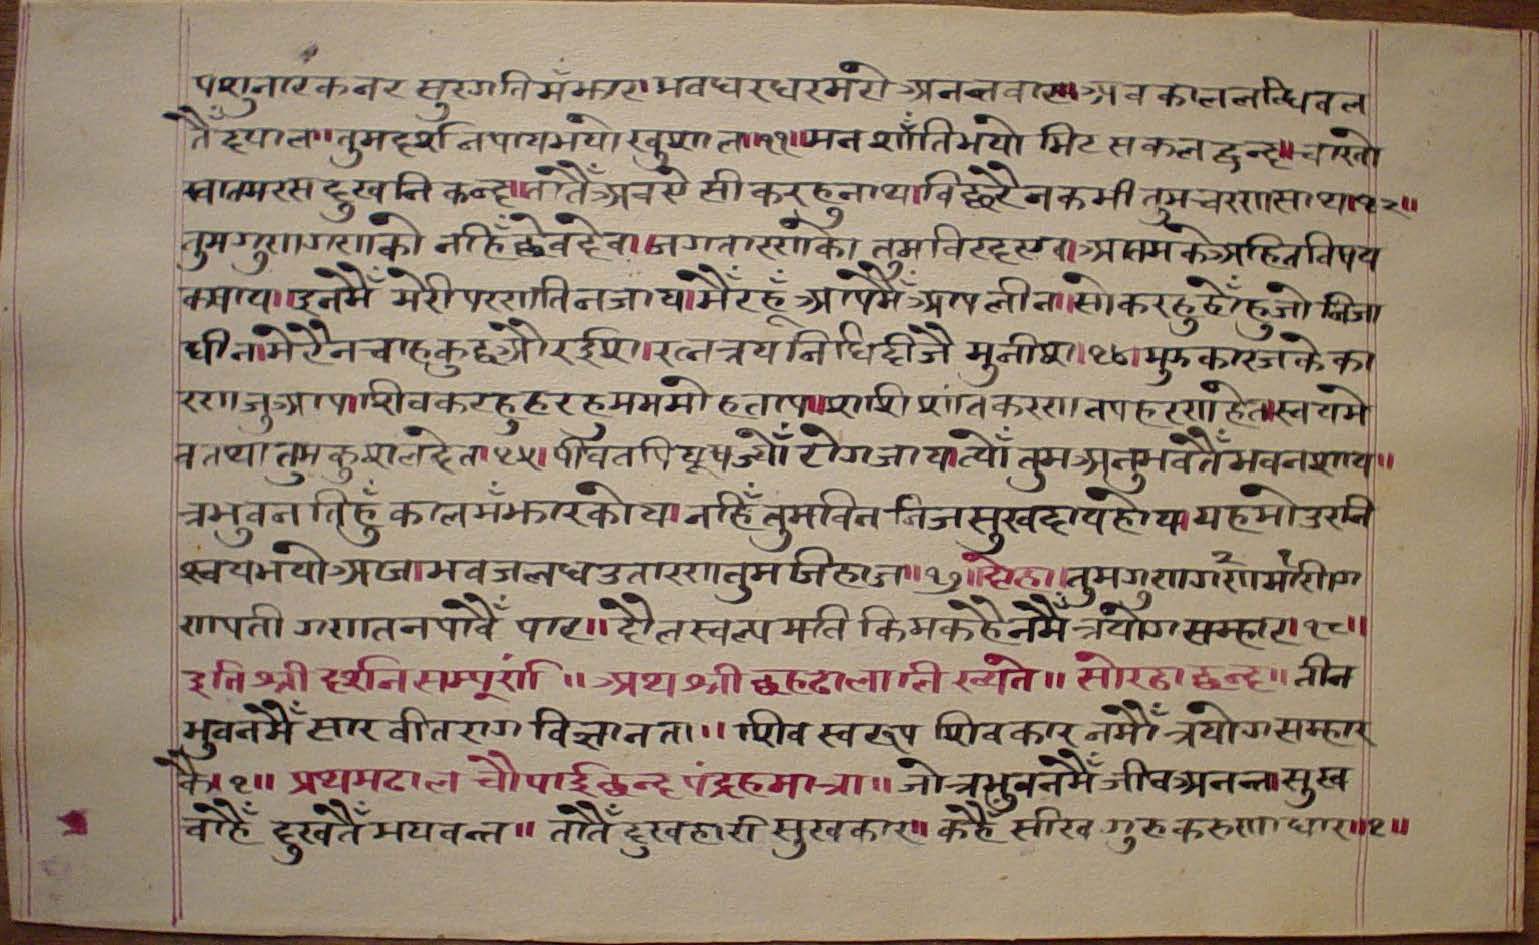 पशुनारकनर सुरगतिमँझार। भवधरधरमरो अनन्तवार॥ अब काललब्धिबल
तैँदयाल॥ तुमदर्शनपायभयो खुशाल॥११॥ मन शाँतिभयो मिट सकल द्वन्द॥ चाख्यो
स्वातमरस दुखनिकन्द॥ तातैँ अबऐसी करहुनाथ। बिछुरैनकभी तुमचरणसाथ।१२॥
तुमगुणगणको नहिँछेवदेव। जगतारणको तुमविरदएव॥ आतमकेअहितविषय
कषाय॥ इनमैँ मेरी परणतिनजाय। मैँरहूँ आपमैँ आपलीन॥ सोकरहुहोँहुजो निजा
धीन॥ मेरैनचाहकुछऔरईश। रत्नत्रयनिधिदीजै मुनीश॥१४। मुझकारजके का
रणजुआप। शिवकरहुहरहुममम मोहताप॥ शशिशांतकरणतपहरणहेत॥ स्वयमे
वतथा तुमकुशलदेत।१५। पीवतपियूषज्योँ रोगजाय। त्योँ तुमअनुभवतैँ भवनशाय॥
त्रभुवनतिहुँ कालमँझारकोय। नहिँ तुमविन निजसुखदायहोय। यहमोउरनि
श्चयभयोआज। भवजलधउतारणतुमजिहाज॥१७॥ दोहा। तुमगुणगणमणी २ १ ग
णपती गणतनपावैँ पार॥ दौलस्वल्पमति किमकहैनमैँ त्रयोगसम्हार।१८।
इति श्री दर्शनसम्पूर्ण॥ अथ श्री छहढालालीख्यंते॥ सोरठाछन्द॥ तीन
भुवनमैँ सार वीतराग विज्ञानता॥ शिव स्वरूप शिवकार नमौँ त्रयोगसम्हार
कै।१॥ प्रथमढाल चौपाईछन्द पंद्रहमात्रा॥ जोत्रभुवनमैँ जीवअनन्त। सुख
चाहैँ दुखतैँ भयवन्त॥ तातैँ दुखहारी सुखकार॥ कहैँ सीख गुरुकरुणाधार॥१॥